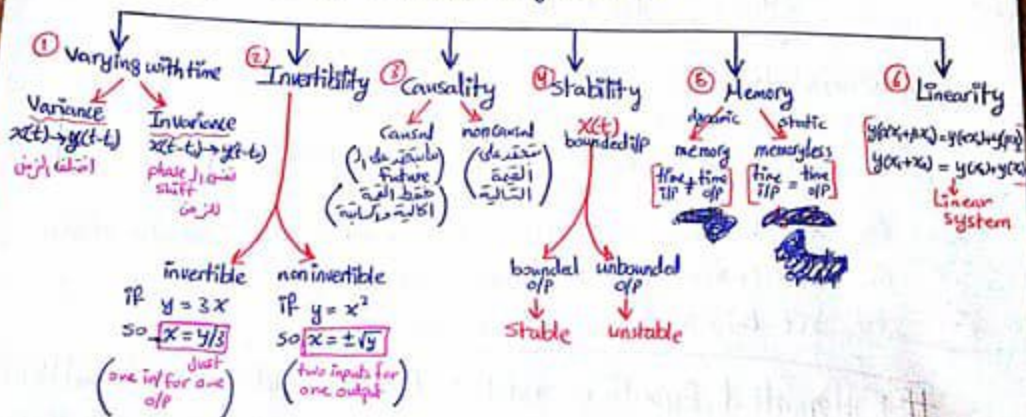 ① Varying with time
Variance
x(t)→y(t-t₀)
Invariance
x(t-t₀)→y(t-t₀)
phase shift
② Invertibility
invertible
if y = 3x
so x = y/3
(just one in/ for one o/p)
noninvertible
if y = x²
so x = ±√y
(two inputs for one output)
③ Causality
causal
future
noncausal
على
القيمة
التالية
④ Stability
x(t)
bounded i/p
bounded o/p
stable
unbounded o/p
unstable
⑤ Memory
dynamic
memory
[time i/p ≠ time o/p]
static
memoryless
[time i/p = time o/p]
⑥ Linearity
y(x₁+x₂) = y(x₁)+y(x₂)
Linear
system